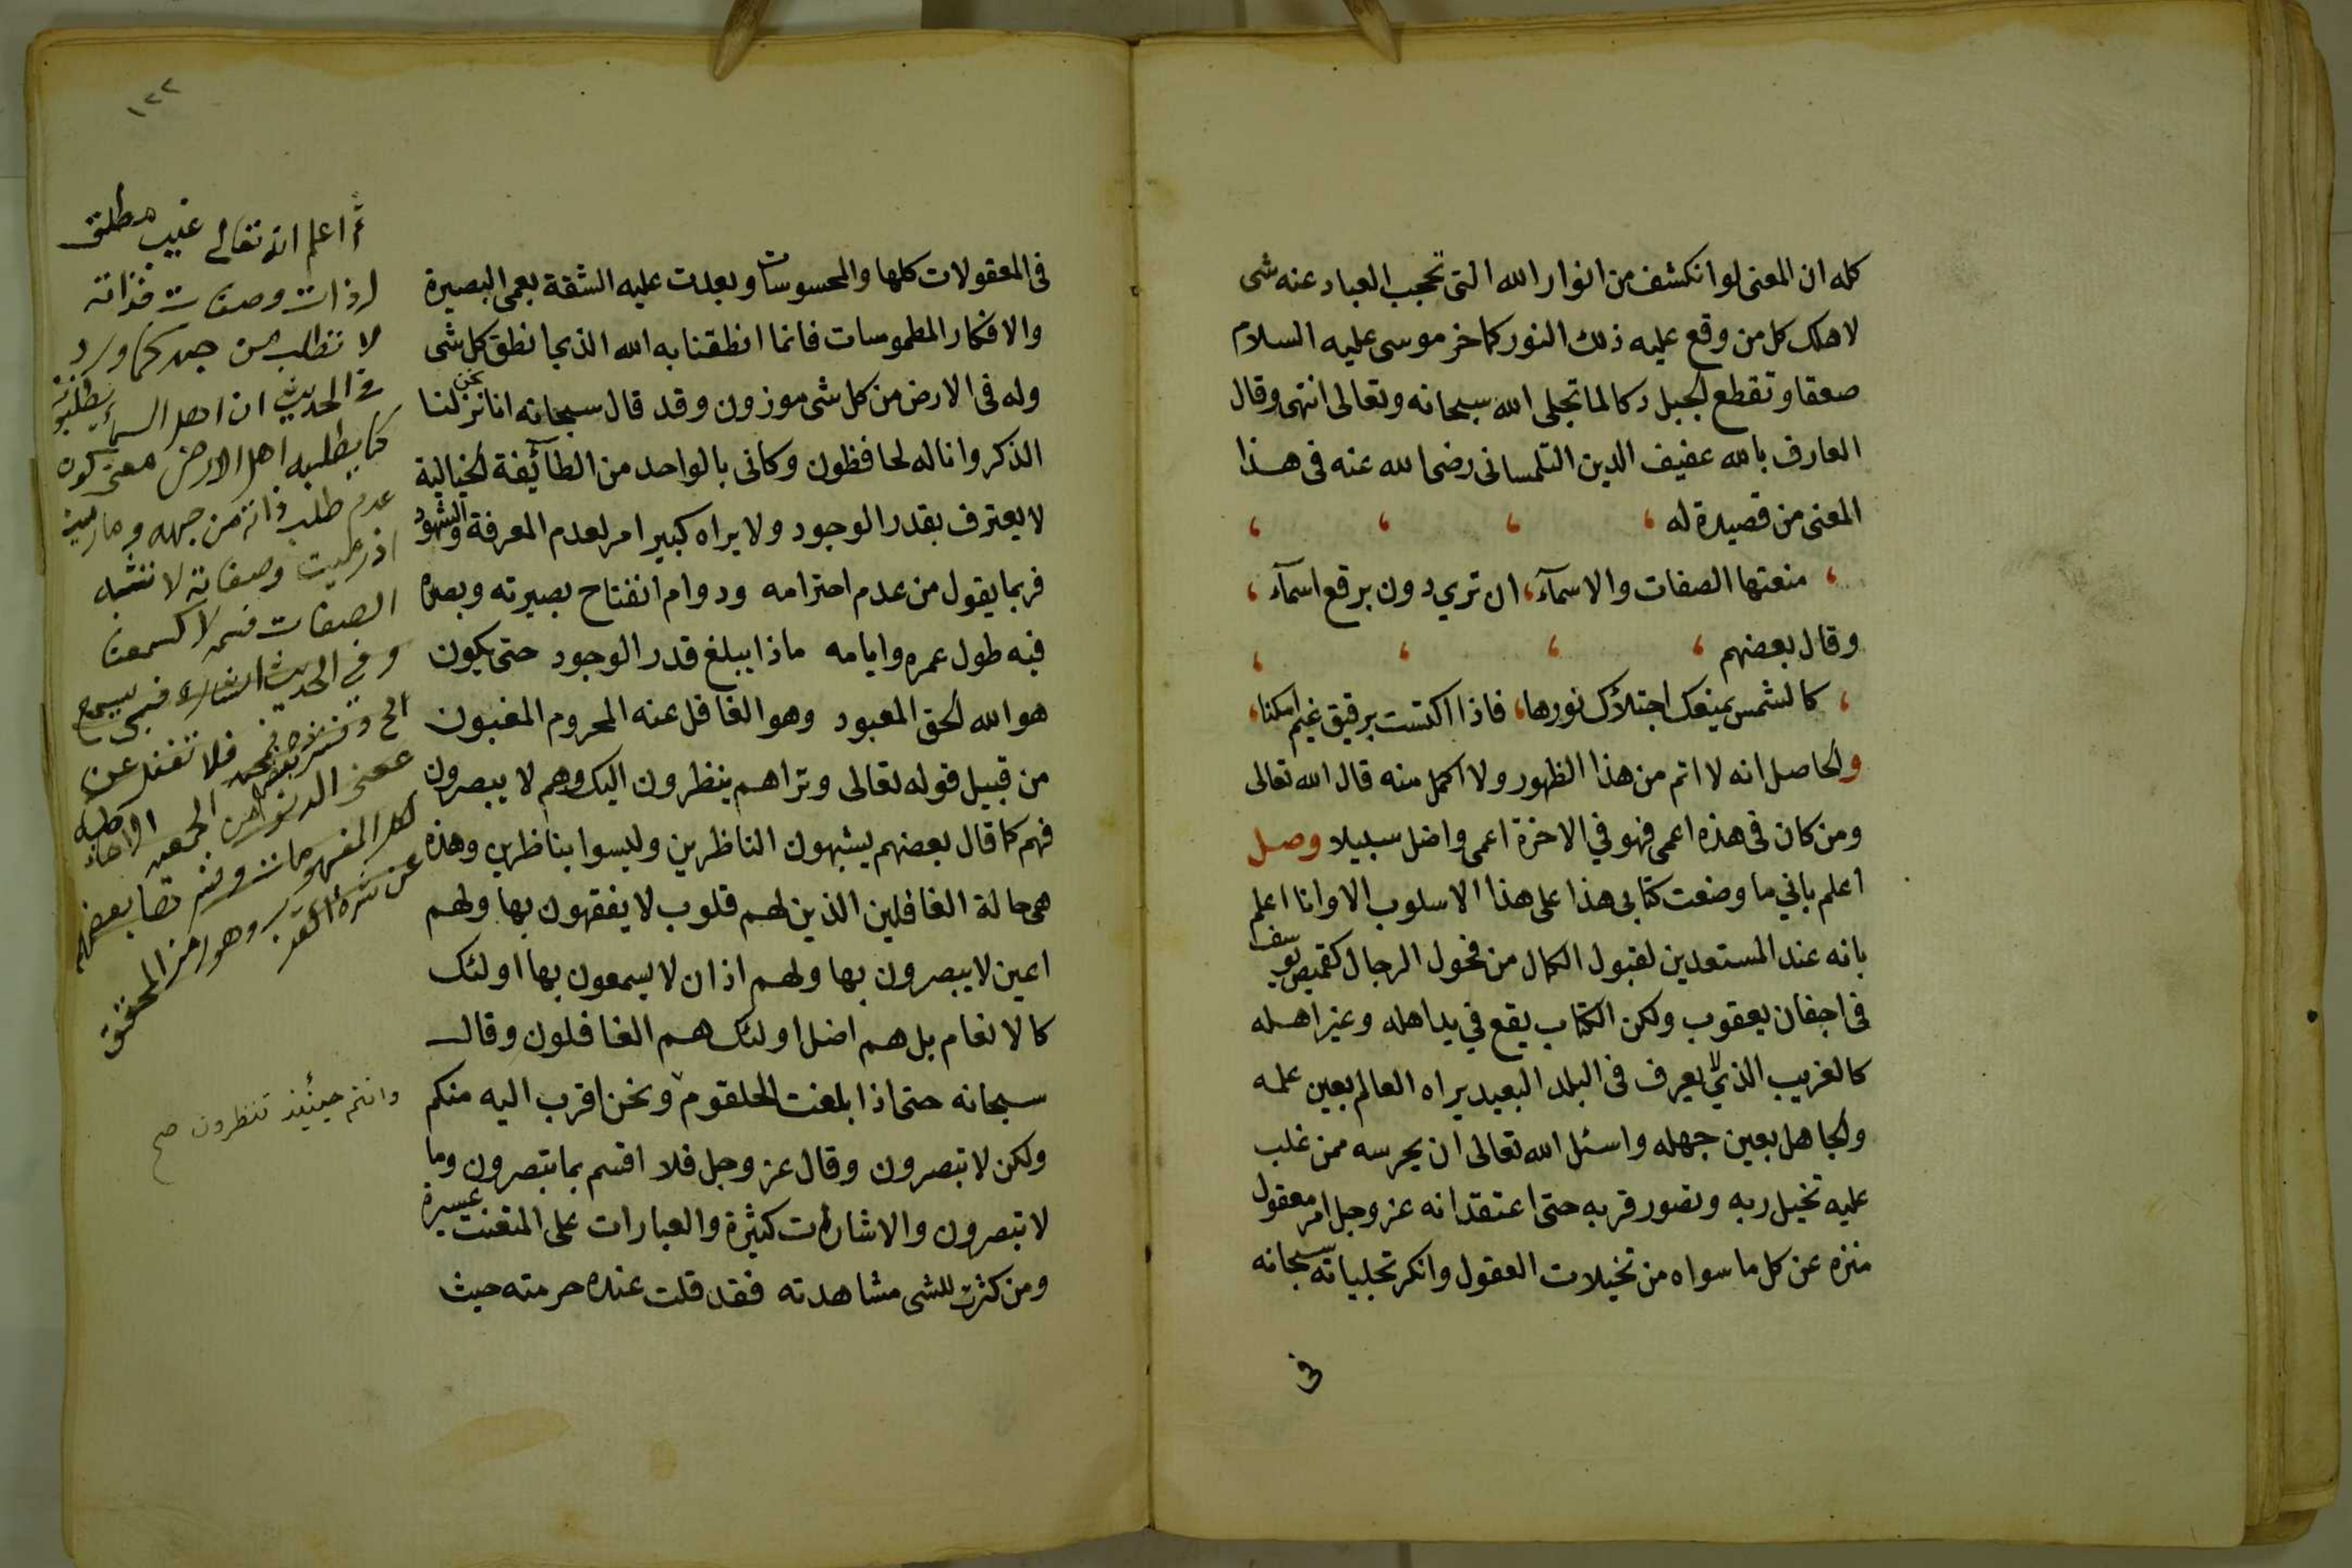 كله ان المعنى لو انكشف من انوار الله التى تحجب العباد عنه شى
لاهلك كل من وقع عليه ذلك النور كما خر موسى عليه السلام
صعقا وتقطع الجبل دكا لما تجلى الله سبحانه وتعالى انتهى وقال
العارف بالله عفيف الدين التلمسانى رضى الله عنه فى هذا
المعنى من قصيدة له ، ، ، ،
، منعتها الصفات والاسمآء، ان تري دون برقع اسمآء ،
وقال بعضهم ، ، ، ،
، كالشمس يمنعك اجتلآك نورها، فاذا اكتست برقيق غيم امكنا،
والحاصل انه لا اتم من هذا الظهور ولا اكمل منه قال الله تعالى
ومن كان فى هذه اعمى فهو في الاخرة اعمى واضل سبيلا وصل
اعلم باني ما وضعت كتابى هذا على هذا الاسلوب الا وانا اعلم
بانه عند المستعدين لقبول الكمال من فحول الرجال كقميص يوسف
فى اجفان يعقوب ولكن الكتاب يقع في يد اهله وغير اهله
كالغريب الذي لا يعرف فى البلد البعيد يراه العالم بعين علمه
والجاهل بعين جهله واسئل الله تعالى ان يحرسه ممن غلب
عليه تخيل ربه وتصور قربه حتى اعتقد انه عز وجل امر معقول
منزه عن كل ما سواه من تخيلات العقول وانكر تجلياته سبحانه
فى
١٢٢
فى المعقولات كلها والمحسوسات وبعدت عليه الشقة بعمى البصيرة
والافكار المطموسات فانما انطقنا به الله الذي انطق كل شى
وله فى الارض من كل شى موزون وقد قال سبحانه انا نحن نزلنا
الذكر وانا له لحافظون وكانى بالواحد من الطآئفة الخيالية
لا يعترف بقدر الوجود ولا يراه كبير امر لعدم المعرفة والشهود
فربما يقول من عدم احترامه ودوام انفتاح بصيرته وبصره
فيه طول عمره وايامه ماذا يبلغ قدر الوجود حتى يكون
هو الله الحق المعبود وهو الغافل عنه المحروم المغبون
من قبيل قوله تعالى وتراهم ينظرون اليك وهم لا يبصرون
فهم كما قال بعضهم يشبهون الناظرين وليسوا بناظرين وهذه
هى حالة الغافلين الذين لهم قلوب لا يفقهون بها ولهم
اعين لا يبصرون بها ولهم اذان لا يسمعون بها اولئك
كالانعام بل هم اضل اولئك هم الغافلون وقال
سبحانه حتى اذا بلغت الحلقوم ونحن اقرب اليه منكم
ولكن لا تبصرون وقال عز وجل فلا اقسم بما تبصرون وما
لا تبصرون والاشارات كثيرة والعبارات على المتعنت عسيرة
ومن كثرت للشى مشاهدته فقد قلت عنده حرمته حيث
اعلم انه تعالى غيب مطلق
ذات وصفات فذاته
لا تطلب من جهة كما ورد
فى الحديث ان اهل السماء يطلبونه
كما يطلبه اهل الارض معنى كون
عدم طلب ذاته من جهة
وصفاته لا تشبه
الصفات
وفي الحديث
فلا تغفل عن
وهو رمز المحقق
وانتم حينئذ تنظرون صح